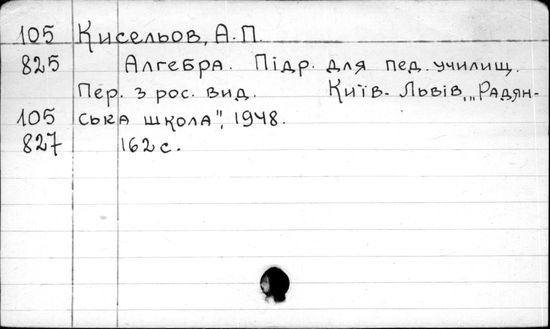 105 Кисельов, А.П.
825 Алгебра. Підр. для пед. училищ.
Пер. з рос. вид. Київ-Львів, „Радян-
105 ська школа", 1948.
827 162 с.